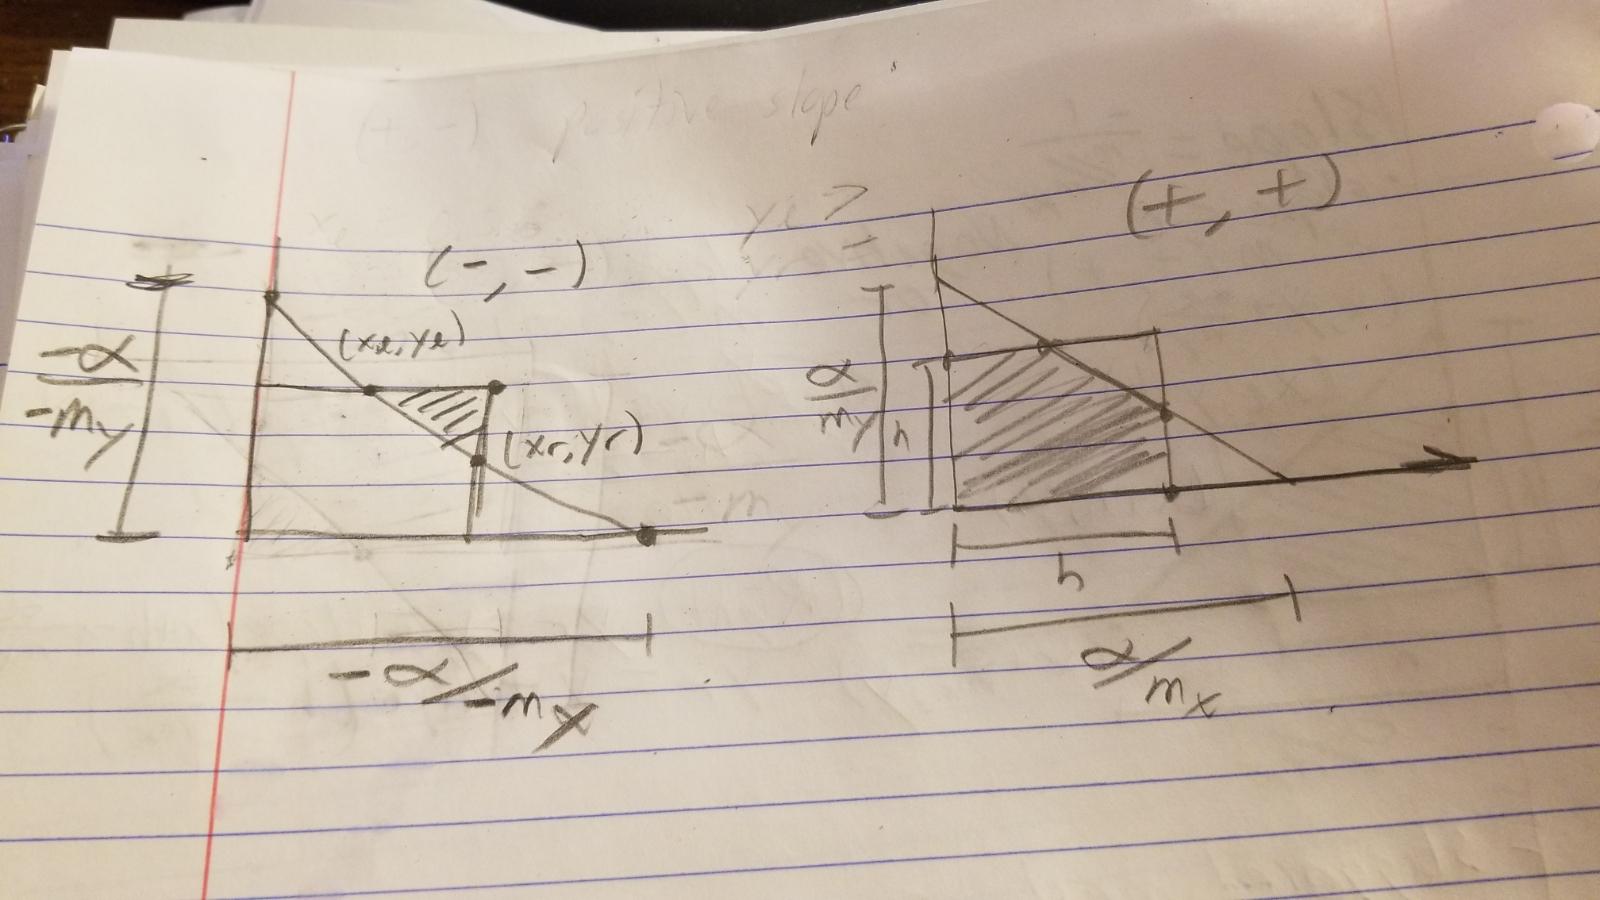 (+, -) positive slope
(-, -)
(xl, yl)
(xr, yr)
-α
-my
-α/-mx
(+, +)
α
my
h
h
α/mx